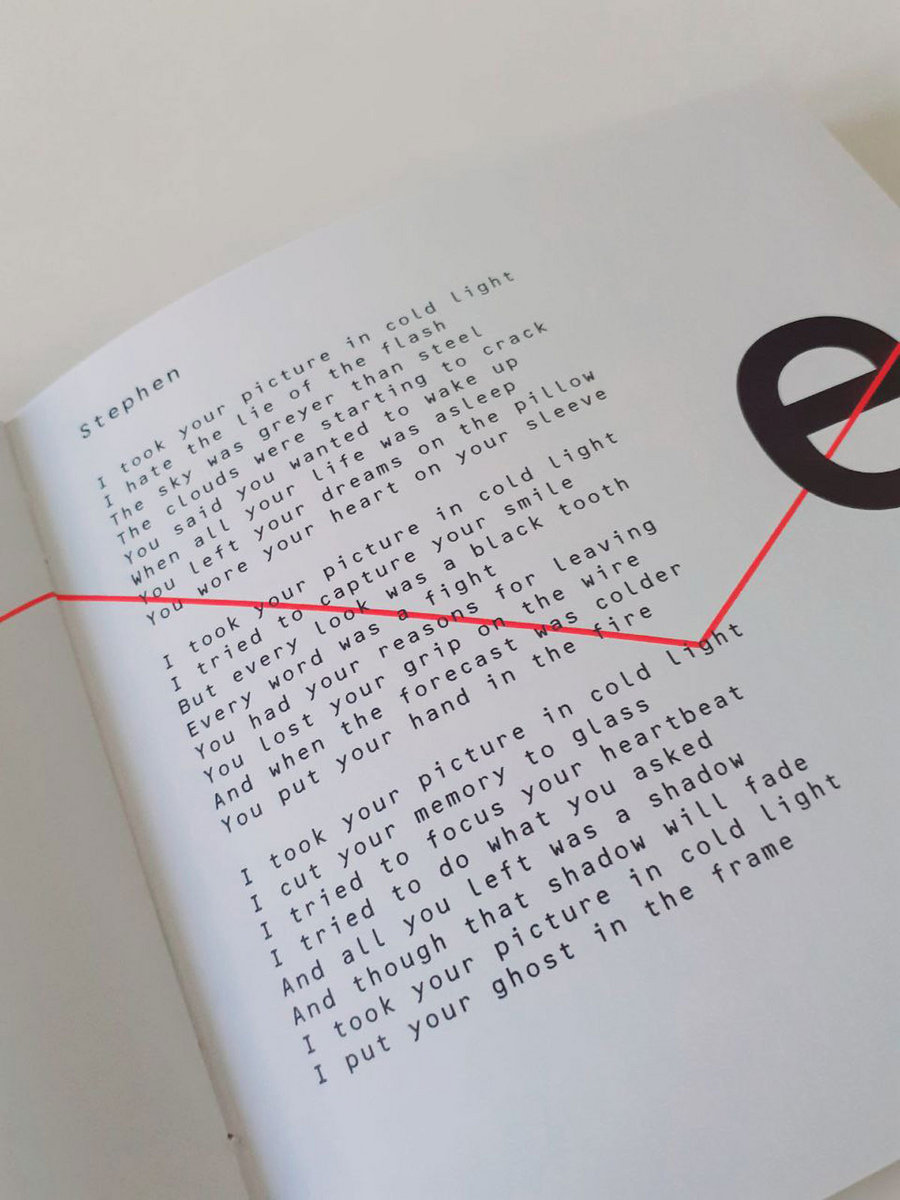 Stephen
I took your picture in cold light
I hate the lie of the flash
The sky was greyer than steel
The clouds were starting to crack
You said you wanted to wake up
When all your life was asleep
You left your dreams on the pillow
You wore your heart on your sleeve
I took your picture in cold light
I tried to capture your smile
But every look was a black tooth
Every word was a fight
You had your reasons for leaving
You lost your grip on the wire
And when the forecast was colder
You put your hand in the fire
I took your picture in cold light
I cut your memory to glass
I tried to focus your heartbeat
I tried to do what you asked
And all you left was a shadow
And though that shadow will fade
I took your picture in cold light
I put your ghost in the frame
e